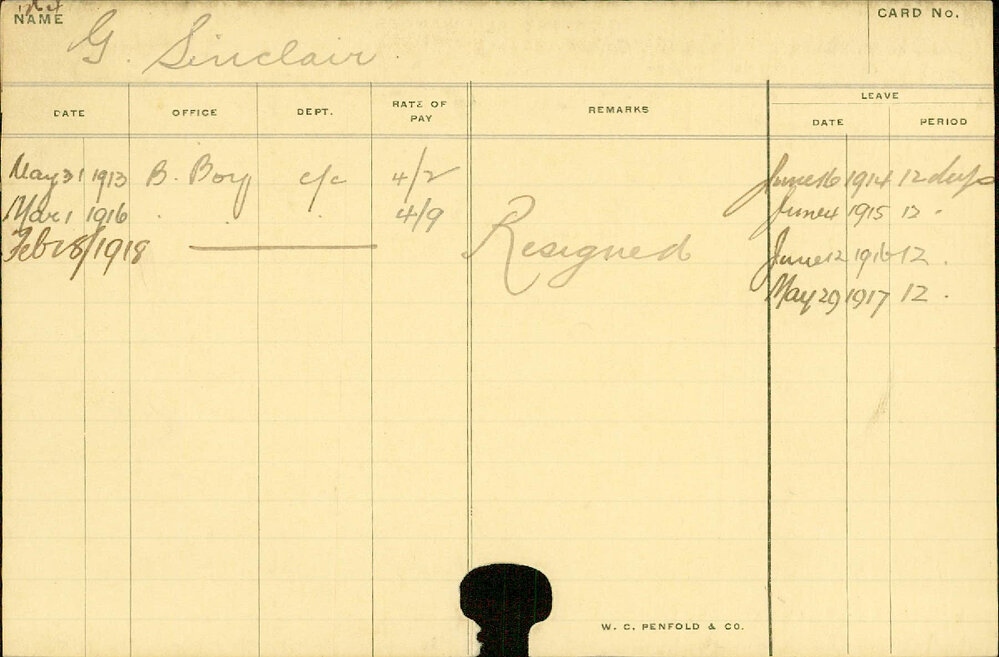 NAME
G. Sinclair
CARD No.
DATE OFFICE DEPT. RATE OF PAY REMARKS LEAVE
DATE PERIOD
May 31 1913 B. Boy c/c 4/2 June 16 1914 12 days
Mar 1 1916 . . . 4/9 June 4 1915 12 .
Feb 18/1918 Resigned June 12 1916 12 .
May 29 1917 12 .
W. C. PENFOLD & CO.